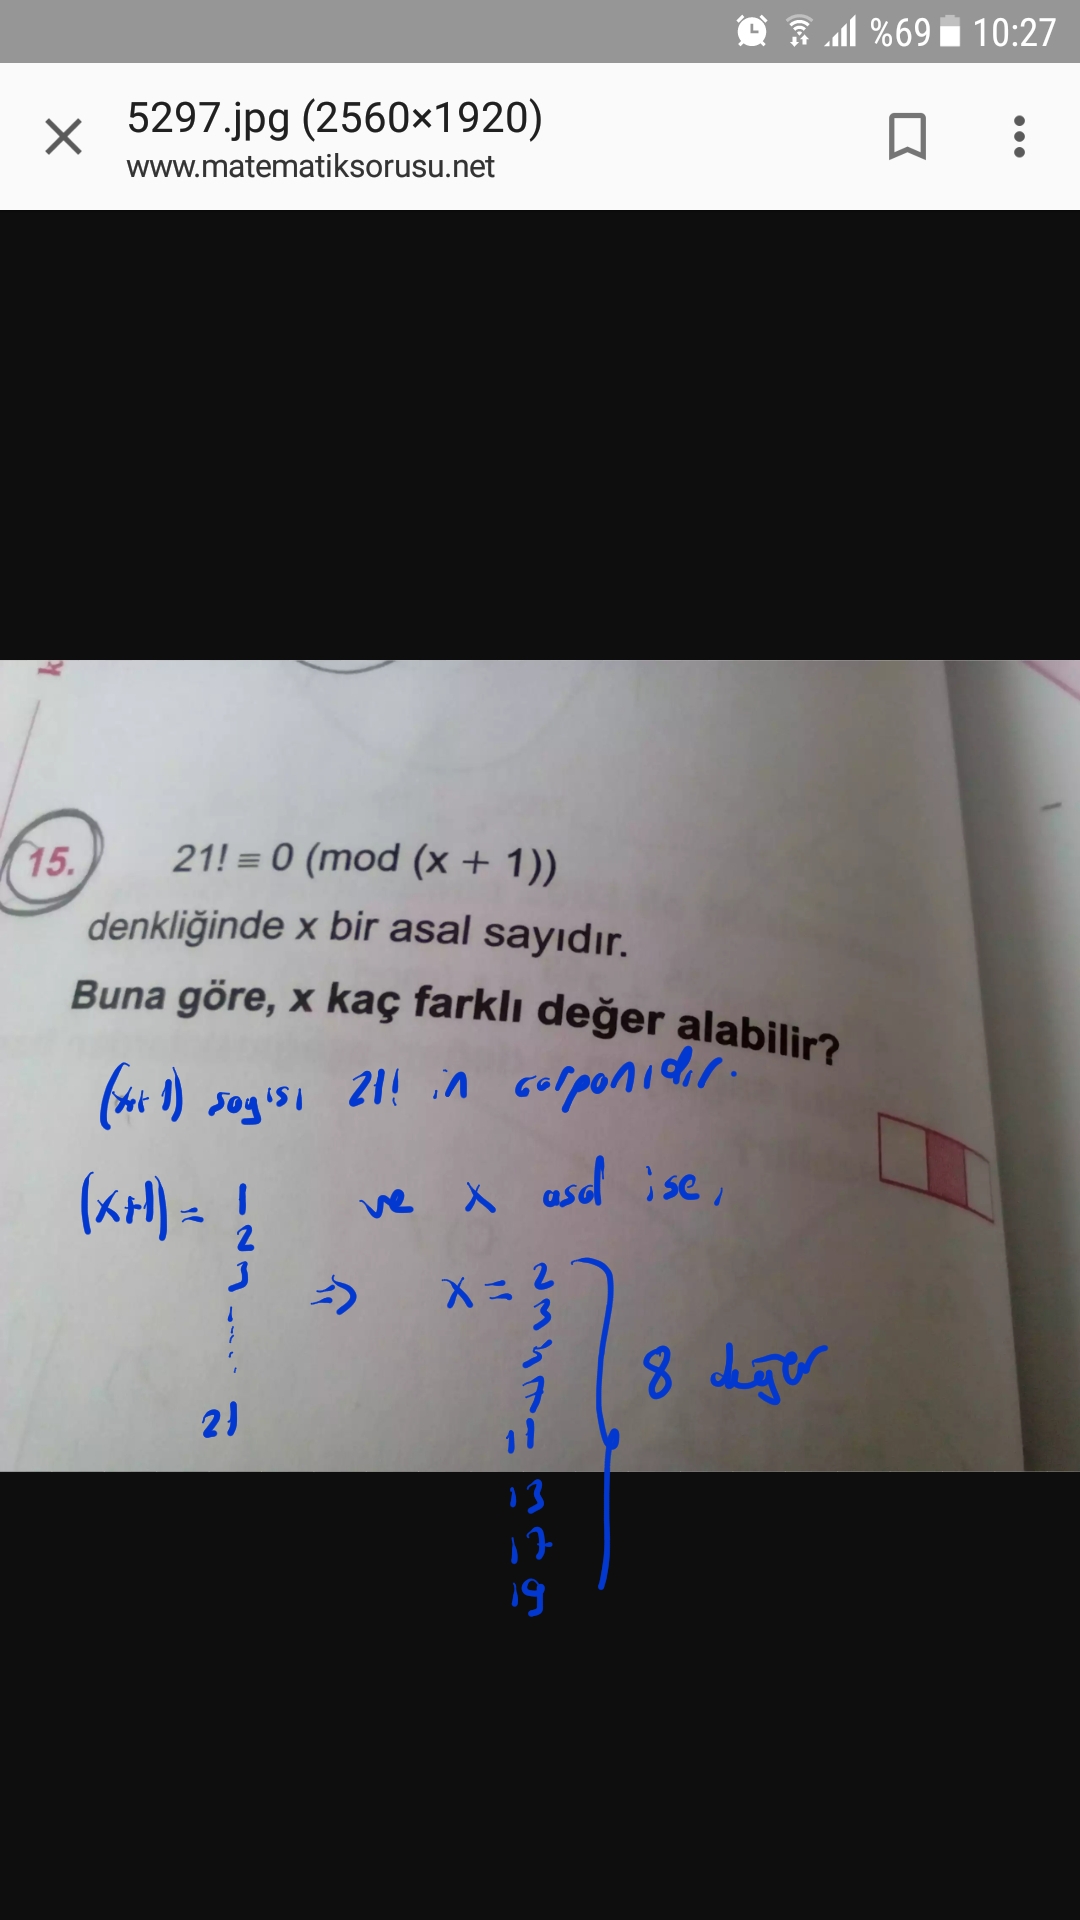 %69 10:27
5297.jpg (2560×1920)
www.matematiksorusu.net
k
15. 21! ≡ 0 (mod (x + 1))
denkliğinde x bir asal sayıdır.
Buna göre, x kaç farklı değer alabilir?
(x+1) sayısı 21! in çarpanıdır.
(x+1) = 1 ve x asal ise,
2
3 ⇒ x = 2
3
5
7 8 değer
21 11
13
17
19